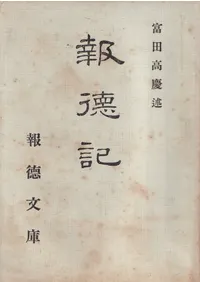 富田高慶述
報德記
報德文庫